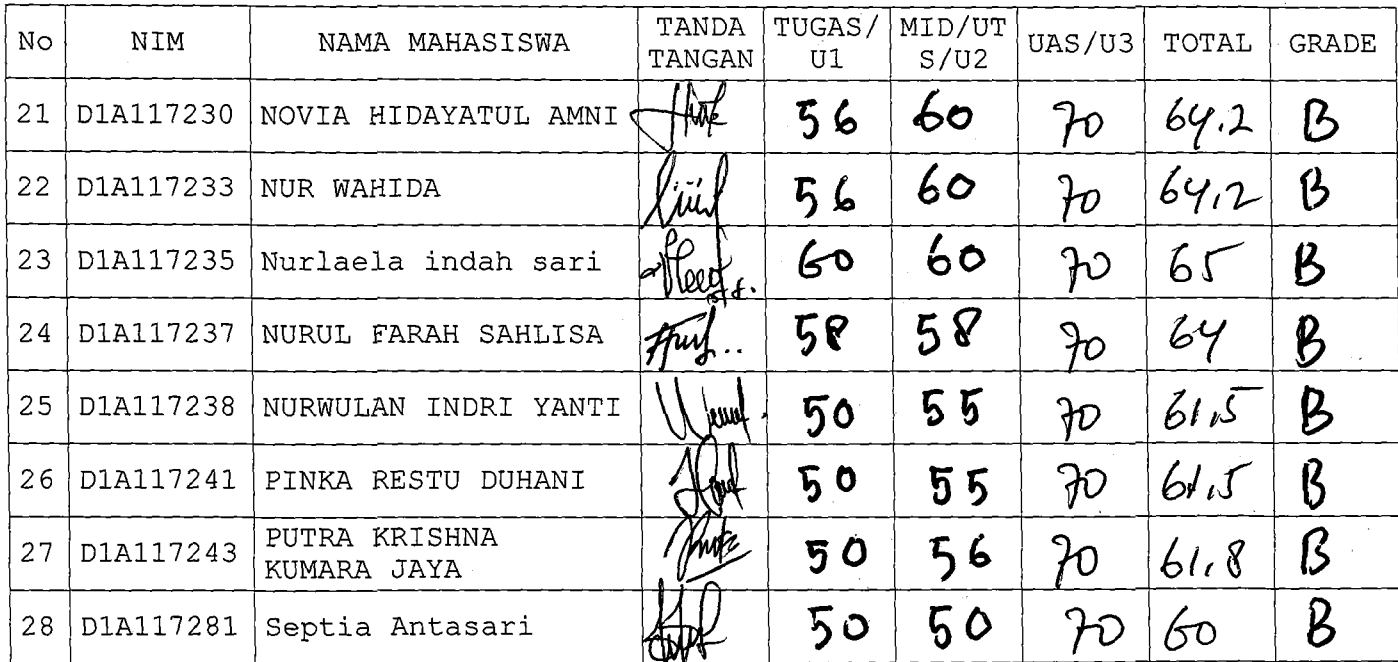 No NIM NAMA MAHASISWA TANDA TANGAN TUGAS/U1 MID/UTS/U2 UAS/U3 TOTAL GRADE
21 D1A117230 NOVIA HIDAYATUL AMNI 56 60 70 64.2 B
22 D1A117233 NUR WAHIDA 56 60 70 64,2 B
23 D1A117235 Nurlaela indah sari 60 60 70 65 B
24 D1A117237 NURUL FARAH SAHLISA 58 58 70 64 B
25 D1A117238 NURWULAN INDRI YANTI 50 55 70 61,5 B
26 D1A117241 PINKA RESTU DUHANI 50 55 70 61,5 B
27 D1A117243 PUTRA KRISHNA KUMARA JAYA 50 56 70 61,8 B
28 D1A117281 Septia Antasari 50 50 70 60 B